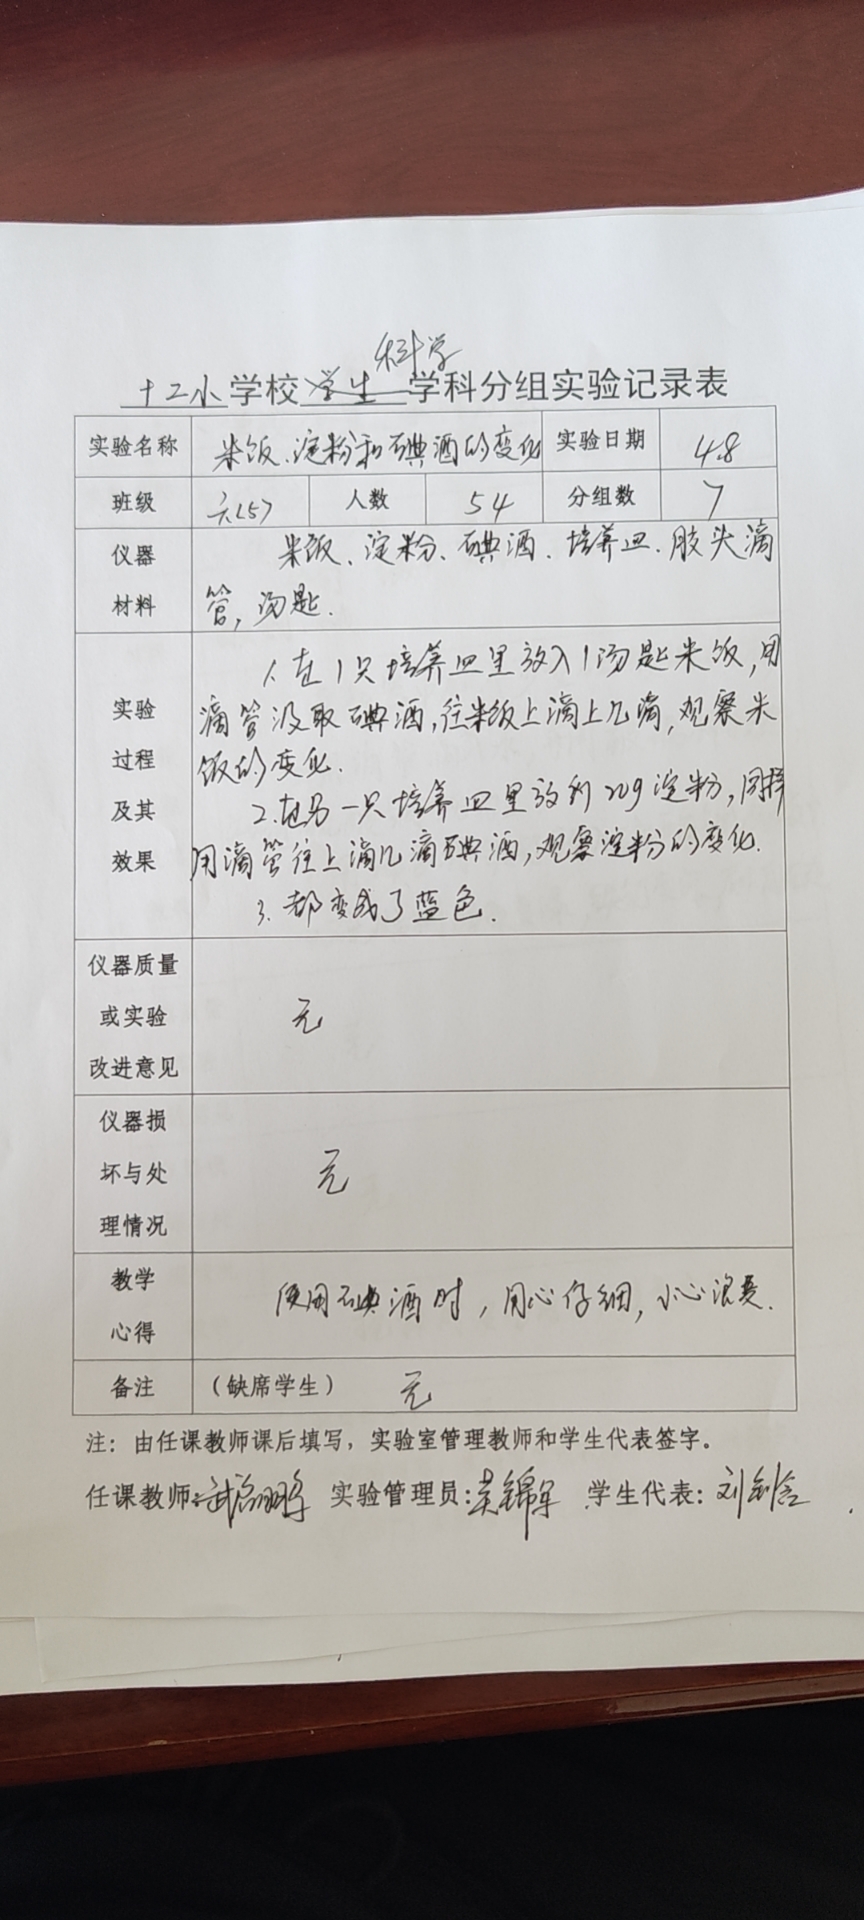 科学
十二小学校学生学科分组实验记录表
实验名称 米饭、淀粉和碘酒的变化 实验日期 4.8
班级 六(5) 人数 54 分组数 7
仪器材料 米饭、淀粉、碘酒、培养皿、胶头滴
管,汤匙.
实验过程及其效果 1.在1只培养皿里放入1汤匙米饭,用
滴管汲取碘酒,往米饭上滴上几滴,观察米
饭的变化.
2.在另一只培养皿里放 20g淀粉,同样
用滴管往上滴几滴碘酒,观察淀粉的变化.
3.都变成了蓝色.
仪器质量或实验改进意见 无
仪器损坏与处理情况 无
教学心得 使用碘酒时,用心仔细,小心
备注 (缺席学生) 无
注:由任课教师课后填写,实验室管理教师和学生代表签字。
任课教师: 实验管理员: 学生代表:刘